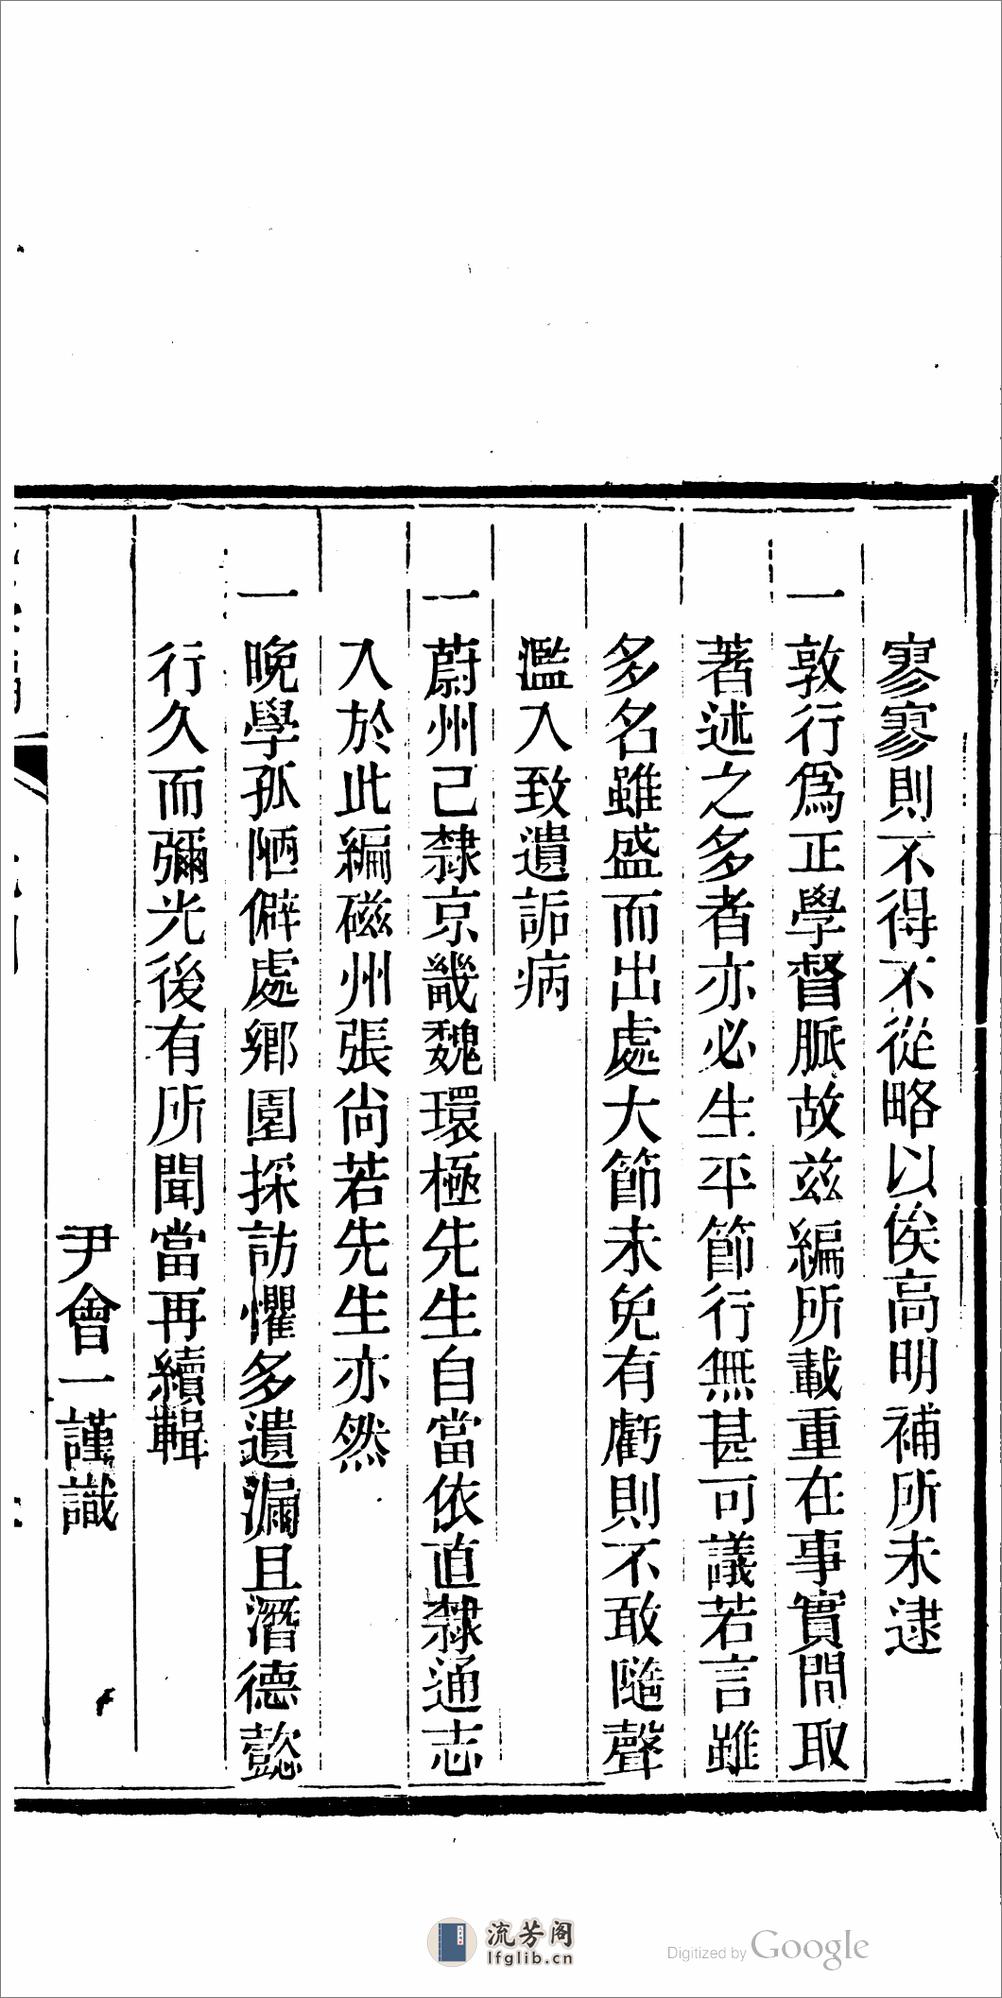 寥寥則不得不從略以俟高明補所未逮
一敦行爲正學督脈故兹編所載重在事實間取
著述之多者亦必生平節行無甚可議若言雖
多名雖盛而出處大節未免有虧則不敢隨聲
濫入致遺詬病
一蔚州已隸京畿魏環極先生自當依直隸通志
入於此編磁州張尙若先生亦然
一晚學孤陋僻處鄉園採訪懼多遺漏且潛德懿
行久而彌光後有所聞當再續輯
尹會一謹識
流芳阁
lfglib.cn
Digitized by Google